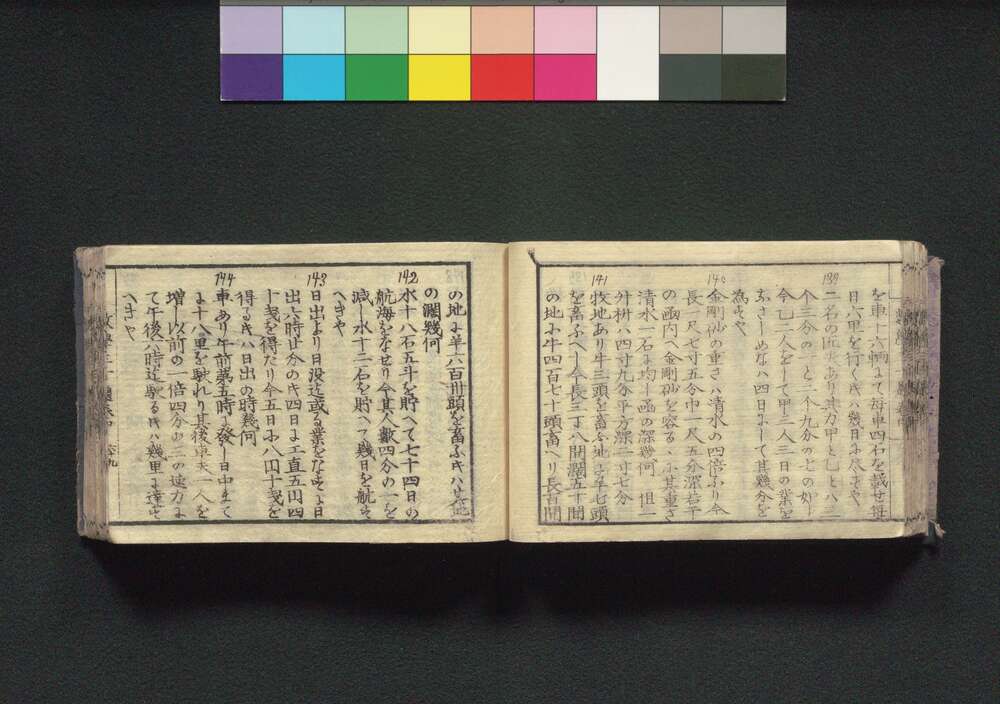 を車十六輌にて每車四石を載せ每
日六里を行くキハ幾日に尽すや
139
二名の匠夫あり其力甲と乙とハ三
个三分の一と二个九分の七の如し
今乙二人をして甲三人三日の業を
なさしめなハ四日にして其幾分を
為すや
140
金剛砂の重さハ清水の四倍なり今
長一尺七寸五分巾一尺五分深若干
の凾内へ金剛砂を容るゝに其重さ
清水一石に均し凾の深幾何 但一
升枡ハ四寸九分平方深二寸七分
141
牧地あり牛三頭を畜ふ地に羊七頭
を畜ふへし今長三丁八間濶五十間
の地に牛四百七十頭畜へり長百間
の地に羊六百卅頭を畜ふキハ其地
の濶幾何
142
水十八石五斗を貯へて七十四日の
航海をなせり今其人數四分の一を
減し水十二石を貯へて幾日を航す
へきや
143
日出より日没迄或る業をなすに日
出六時廿分のキ四日に工直五円四
十戋を得たり今五日に八円十戋を
得るキハ日出の時幾何
144
車あり午前第五時に發し日中まて
に十八里を馳れり其後車夫一人を
増し以前の一倍四分の二の速力に
て午後八時迄馳るキハ幾里に達す
へきや